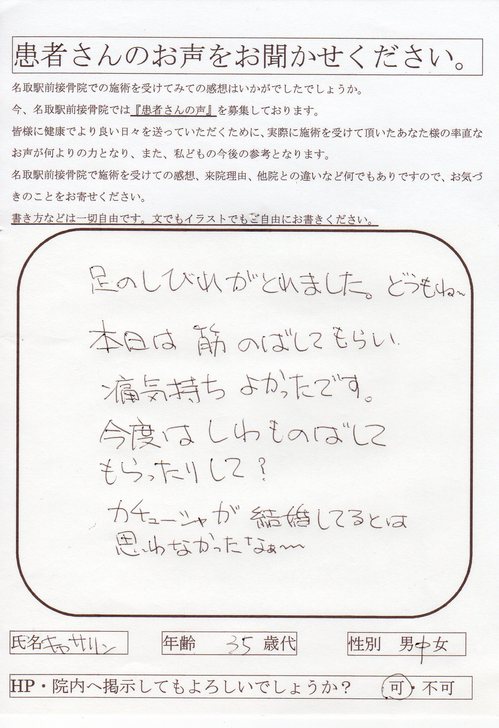 患者さんのお声をお聞かせください。
名取駅前接骨院での施術を受けてみての感想はいかがでしたでしょうか。
今、名取駅前接骨院では『患者さんの声』を募集しております。
皆様に健康でより良い日々を送っていただくために、実際に施術を受けて頂いたあなた様の率直な
お声が何よりの力となり、また、私どもの今後の参考となります。
名取駅前接骨院で施術を受けての感想、来院理由、他院との違いなど何でもありですので、お気づ
きのことをお寄せください。
書き方などは一切自由です。文でもイラストでもご自由にお書きください。
足のしびれがとれました。どうもね〜
本日は 筋 のばしてもらい
痛気持ち よかったです。
今度は しわものばして
もらったりして？
カチューシャが 結婚してるとは
思わなかったなぁ〜
氏名 キャサリン 年齢 35 歳代 性別 男中女
HP・院内へ掲示してもよろしいでしょうか？ 可・不可